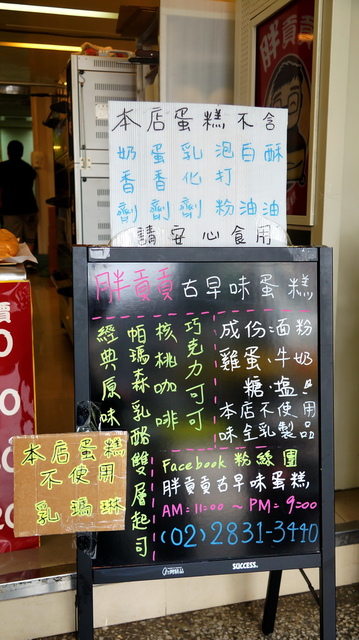 本店蛋糕不含
奶香劑
蛋香劑
乳化劑
泡打粉
白油
酥油
請安心食用
胖貢貢古早味蛋糕
經典原味
帕瑪森乳酪雙層起司
核桃咖啡
巧克力可可
成份:麵粉
雞蛋、牛奶
糖、塩!
本店不使用
味全乳製品
Facebook 粉絲團
胖貢貢古早味蛋糕
AM=11:00 ~ PM=9:00
(02)2831-3440
SUCCESS.
本店蛋糕
不使用
乳瑪琳
胖貢貢